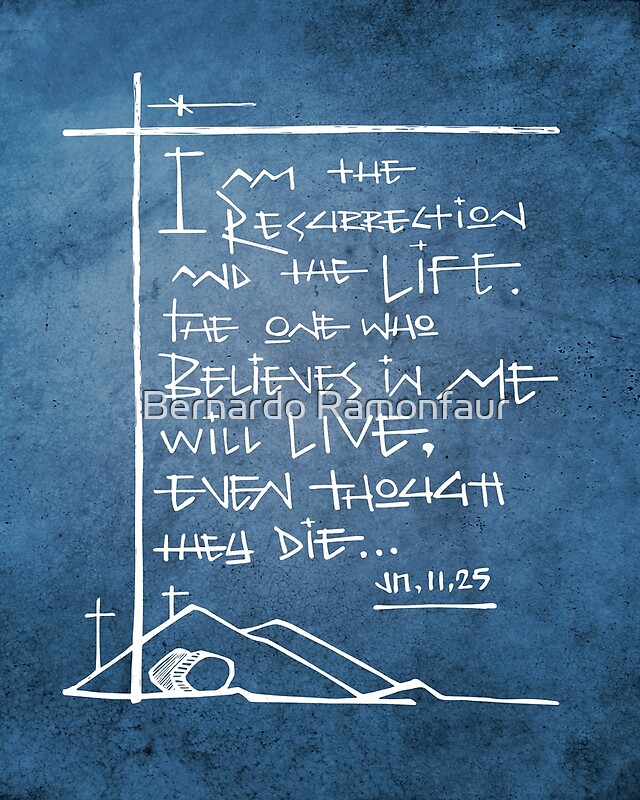 I AM THE
RESURRECTION
AND THE LIFE.
THE ONE WHO
BELIEVES IN ME
Bernardo Ramonfaur
WILL LIVE,
EVEN THOUGH
THEY DIE...
JN, 11, 25